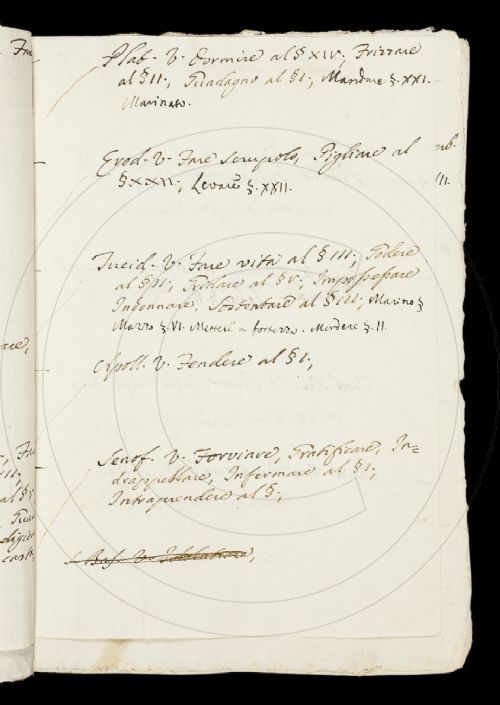 Plat. V. Dormire al § XIV; Frizzare
al § II; Guadagno al § I; Mandare §. XXI.
Marinato.
Erod. V. Fare scrupolo, Pigliare al
§ XXII; Levare §. XXII.
Tucid. V. Fare vita al § III; Godere
al § II; Gridare al § V; Impossessare
Indennare, Sostentare al § III; Marino §
Mazzo §. VI. Mettere a fortezza. Mordere §. II.
Apoll. V. Fendere al § I;
Senof. V. Forviare, Gratificare, In=
drappellare, Infermare al § I;
Intraprendere al §;
Bas. V.